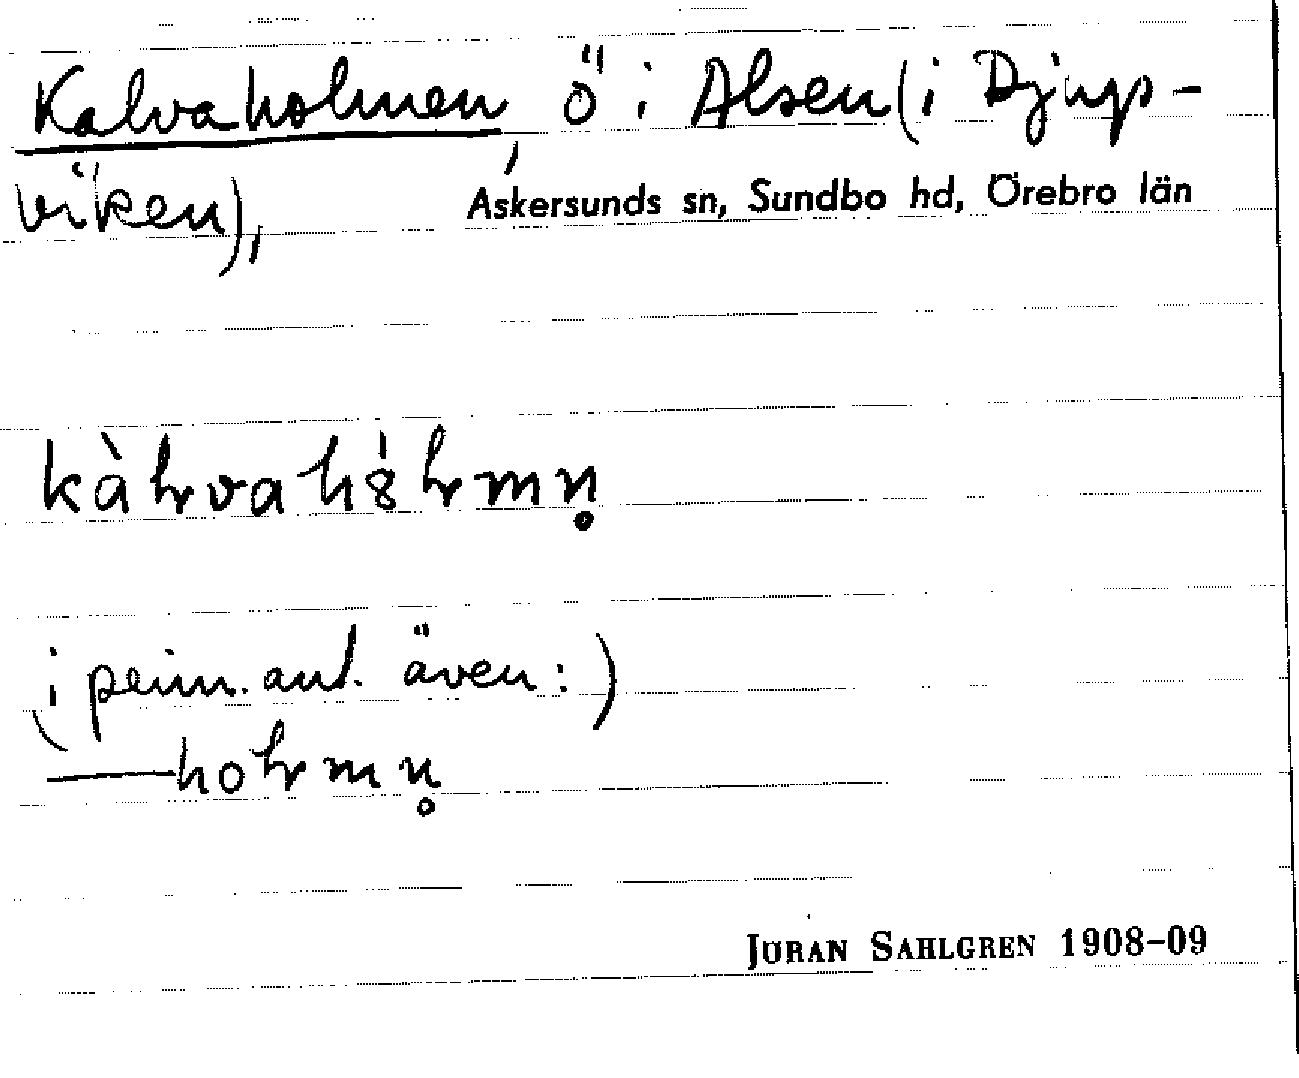 Kalvaholmen, ö i Alsen (i Djup-
viken),
Askersunds sn, Sundbo hd, Örebro län
(i penn. ant. även:)
JÖRAN SAHLGREN 1908–09